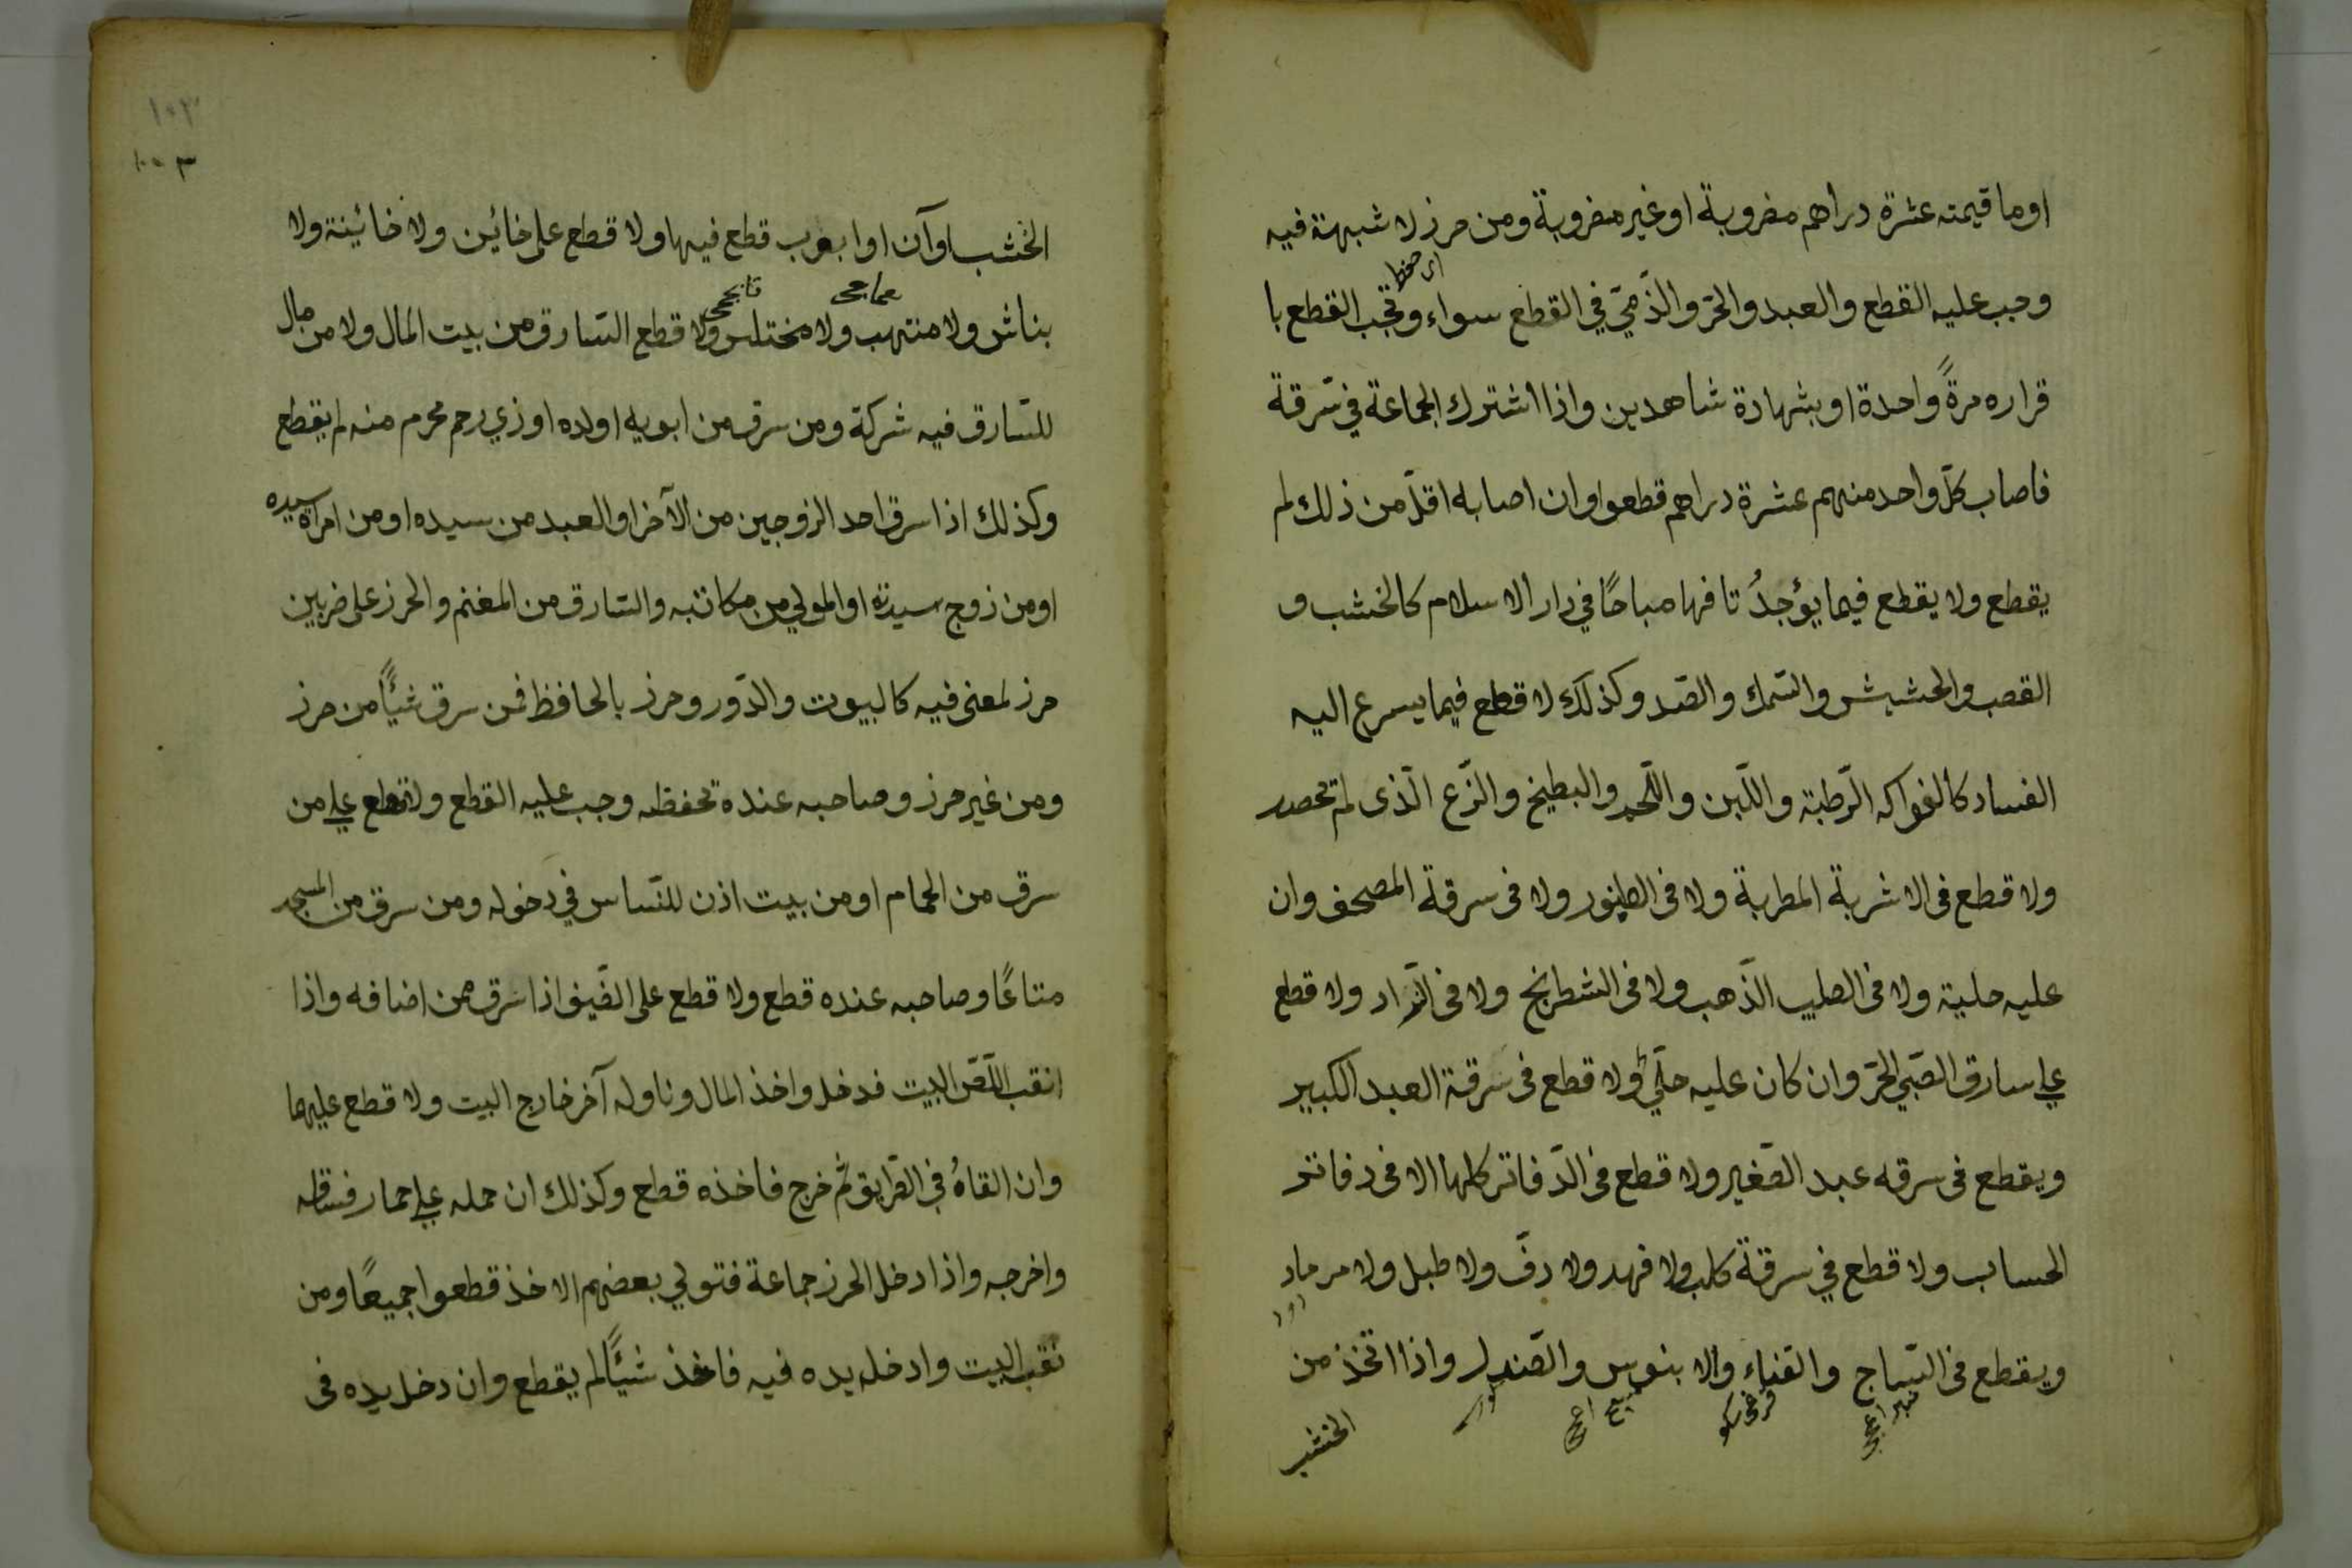 اوما قيمته عشرة دراهم مضروبة اوغير مضروبة ومن حرز لا شبهة فيه
اى حفظ
وجب عليه القطع والعبد والحرّ والذّميّ في القطع سواء وتجب القطع با
قراره مرةً واحدة او بشهادة شاهدين واذا اشترك الجماعة في سرقة
فاصاب كلّ واحد منهم عشرة دراهم قطعوا وان اصابه اقلّ من ذلك لم
يقطع ولا يقطع فيما يؤجدُ تافها مباحًا في دار الاسلام كالخشب و
القصب والحشيش والسّمك والصّد وكذلك لا قطع فيما يسرع اليه
الفساد كالفواكه الرّطبة واللّبن واللّحم والبطيخ والزّرع الّذى لم تحصد
ولا قطع فى الاشربة المطربة ولا فى الطنبور ولا فى سرقة المصحف وان
عليه حلية ولا فى الصليب الذّهب ولا فى الشطرنج ولا فى النّراد ولا قطع
علي سارق الصّبي الحرّ وان كان عليه حلّي ولا قطع فى سرقة العبد الكبير
ويقطع فى سرقه عبد الصّغير ولا قطع فى الدّفاتر كلها الا فى دفاتر
الحساب ولا قطع في سرقة كلب ولا فهد ولا دفّ ولا طبل ولا مرماد
ويقطع فى السّاج والقناء والا بنوس والصّندل واذا اتخذ من
الخشب
الخشب اوآن اوابوب قطع فيها ولا قطع على خائين ولا خائينة ولا
بناش ولا منتهب ولا مختلس ولا قطع السّارق من بيت المال ولا من مال
للسّارق فيه شركة ومن سرق من ابويه او لده اوزي رحم محرم منه لم يقطع
وكذلك اذا سرق احد الزوجين من الآخر او العبد من سيده اومن امراة سيده
اومن زوج سيدته او المولي من مكاتبه والسّارق من المغنم والحرز على ضربين
حرز لمعنى فيه كالبيوت والدّور وحرز بالحافظ فمن سرق شيًّا من حرز
ومن غير حرز وصاحبه عنده تحفظه وجب عليه القطع ولا قطع علي من
سرق من الحمام اومن بيت اذن للنّاس في دخوله ومن سرق من المسجد
متاعًا وصاحبه عنده قطع ولا قطع على الضّيف اذا سرق من اضافه واذا
انقب اللّصّ البيت فدخل واخذ المال وناوله آخر خارج البيت ولا قطع عليهما
وان القاهُ في الطّرايق ثم خرج فاخذه قطع وكذلك ان حمله علي حمار فساقه
واخرجه واذا دخل الحرز جماعة فتولي بعضهم الاخذ قطعوا جميعًا ومن
نقب البيت وادخل يده فيه فاخذ شيًّا لم يقطع وان دخل يده فى
١٠٣
١٠٠٣